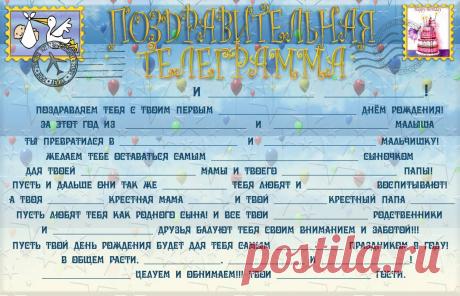 ПОЗДРАВИТЕЛЬНАЯ
ТЕЛЕГРАММА
____________________ И ____________________!
ПОЗДРАВЛЯЕМ ТЕБЯ С ТВОИМ ПЕРВЫМ ____________________ ДНЁМ РОЖДЕНИЯ!
ЗА ЭТОТ ГОД ИЗ ____________________ И ____________________ МАЛЫША
ТЫ ПРЕВРАТИЛСЯ В ____________________ И ____________________ МАЛЬЧИШКУ!
ЖЕЛАЕМ ТЕБЕ ОСТАВАТЬСЯ САМЫМ ____________________ СЫНОЧКОМ
ДЛЯ ТВОЕЙ ____________________ МАМЫ И ТВОЕГО ____________________ ПАПЫ!
ПУСТЬ И ДАЛЬШЕ ОНИ ТАК ЖЕ ____________________ ТЕБЯ ЛЮБЯТ И ____________________ ВОСПИТЫВАЮТ!
А ТВОЯ ____________________ КРЕСТНАЯ МАМА И ТВОЙ ____________________ КРЕСТНЫЙ ПАПА ____________________
ПУСТЬ ЛЮБЯТ ТЕБЯ КАК РОДНОГО СЫНА! И ВСЕ ТВОИ ____________________ РОДСТВЕННИКИ
И ____________________ ДРУЗЬЯ БАЛУЮТ ТЕБЯ СВОИМ ВНИМАНИЕМ И ЗАБОТОЙ!!!
ПУСТЬ ТВОЙ ДЕНЬ РОЖДЕНИЯ БУДЕТ ДЛЯ ТЕБЯ САМЫМ ____________________ ПРАЗДНИКОМ В ГОДУ!
В ОБЩЕМ РАСТИ, ____________________, ____________________ И ____________________!
____________________ ЦЕЛУЕМ И ОБНИМАЕМ!!! ТВОИ ____________________ ГОСТИ.
postila.ru